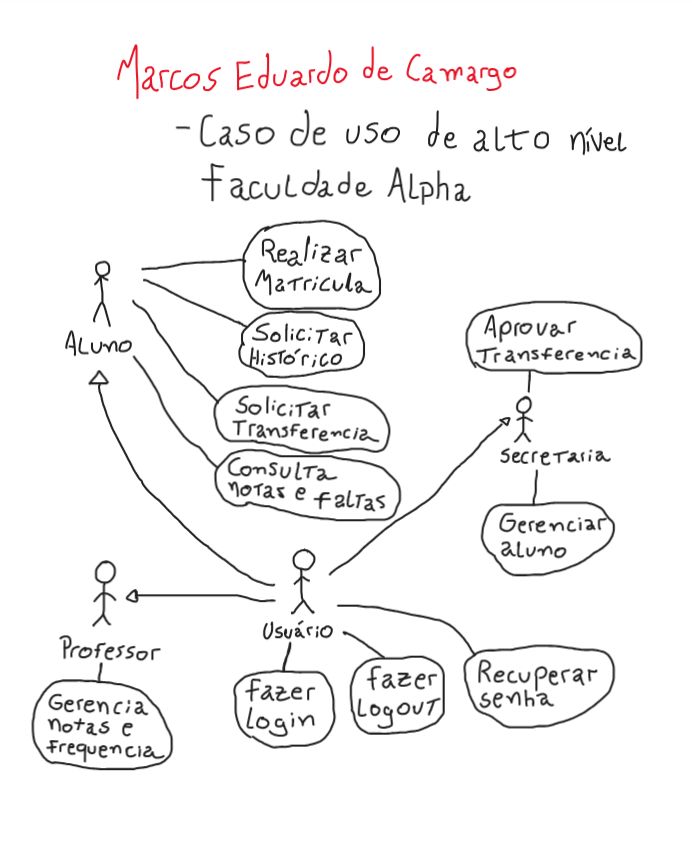 Marcos Eduardo de Camargo
- Caso de uso de alto nível
Faculdade Alpha
Realizar
Matricula
Solicitar
Histórico
Aluno
Solicitar
Transferencia
Consulta
notas e faltas
Aprovar
Transferencia
Secretaria
Gerenciar
aluno
Usuário
Professor
Gerencia
notas e
frequencia
fazer
login
fazer
Logout
Recuperar
senha